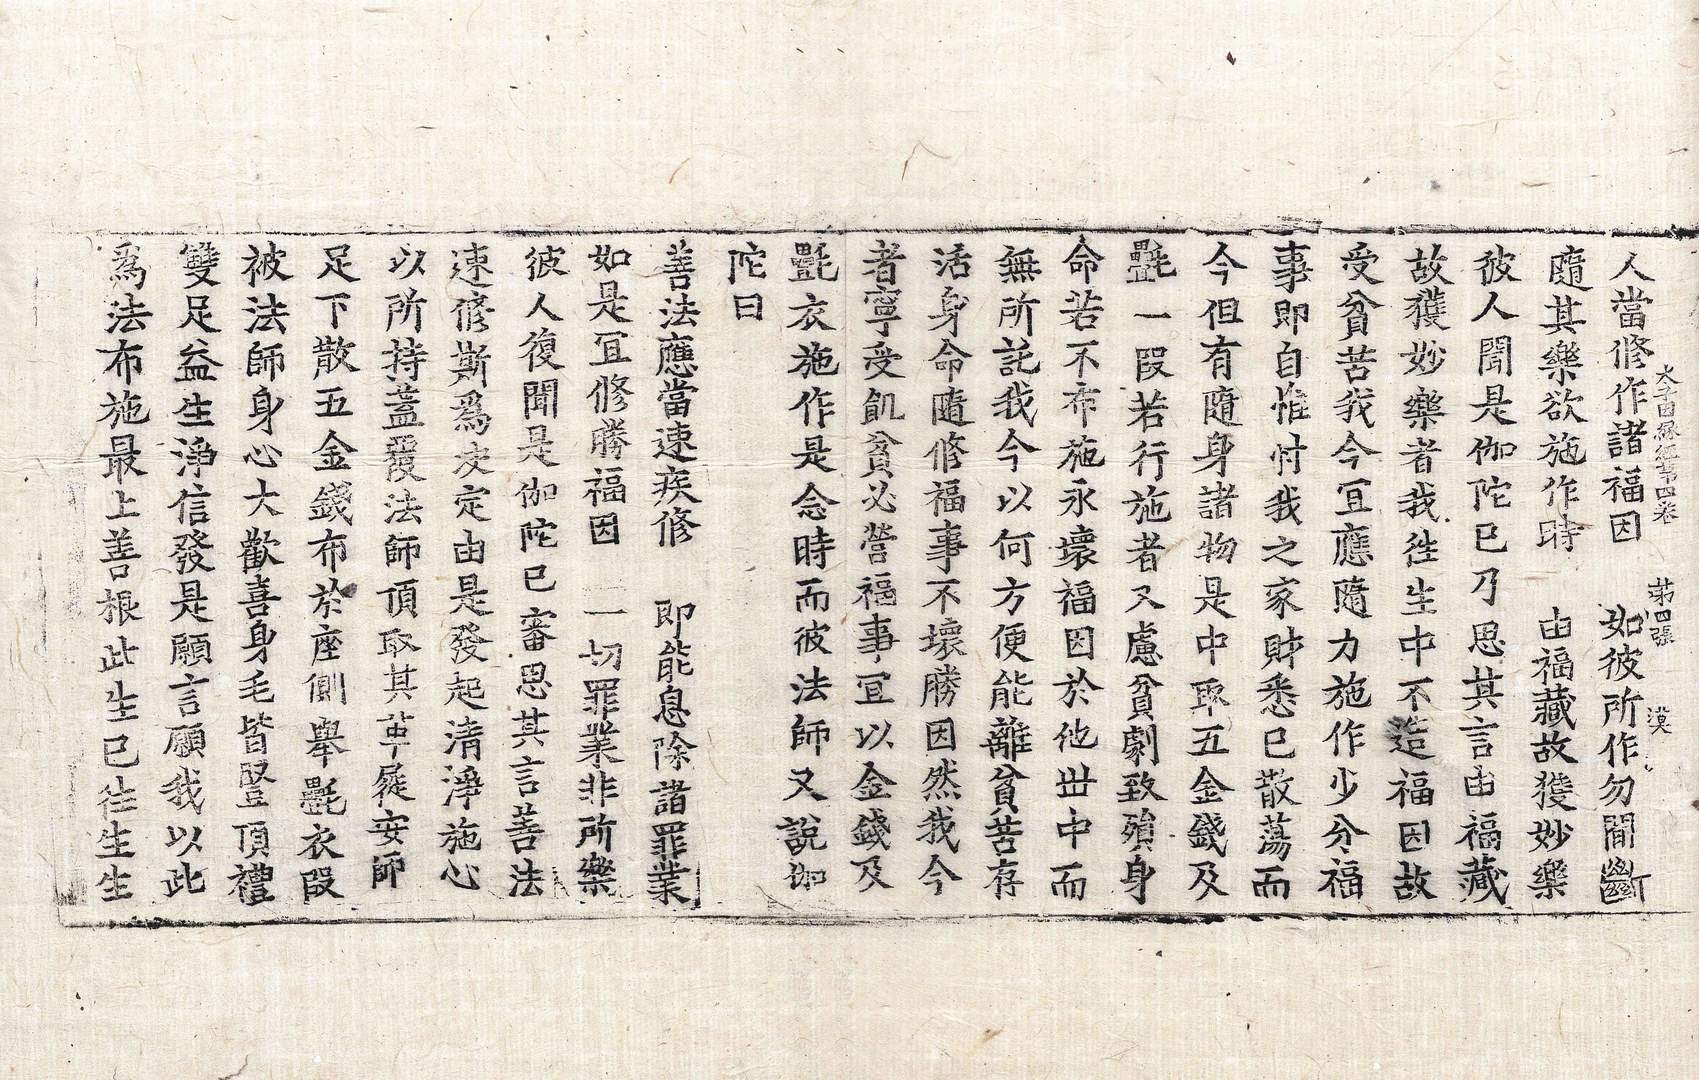 人當修作諸福因　如彼所作勿間斷
隨其樂欲施作時　由福藏故獲妙樂
彼人聞是伽陀已乃思其言由福藏
故獲妙樂者我往生中不造福因故
受貧苦我今冝應隨力施作少分福
事即自惟忖我之家財悉已散蕩而
今但有隨身諸物是中取五金錢及
㲲一段若行施者又慮貧劇致殞身
命若不布施永壞福因於他世中而
無所託我今以何方便能離貧苦存
活身命隨修福事不壞勝因然我今
者寧受飢貧必營福事冝以金錢及
㲲衣施作是念時而彼法師又說伽
陀曰
善法應當速疾修　即能息除諸罪業
如是冝修勝福因　一切罪業非所樂
彼人復聞是伽陀已審思其言善法
速修斯爲决定由是發起清淨施心
以所持蓋覆法師頂取其革屣安師
足下散五金錢布於座側舉㲲衣段
被法師身心大歡喜身毛皆豎頂禮
雙足益生淨信發是願言願我以此
爲法布施最上善根此生已往生生